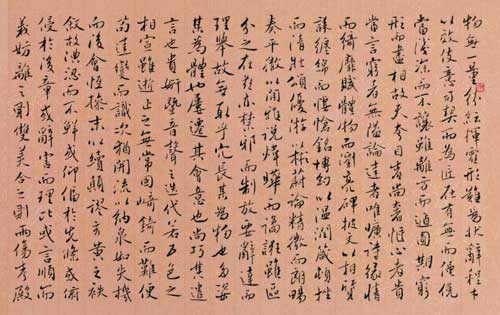 物無一量紛紜揮霍形難為狀辭程才
以效伎意司契而為匠在有無而僶俛
當淺深而不讓雖離方而遁圓期窮
形而盡相故夫夸目者尚奢愜心者貴
當言窮者無隘論達者唯曠詩緣情
而綺靡賦體物而瀏亮碑披文以相質
誄纏綿而悽愴銘博約以溫潤箴頓挫
而清壯頌優游以彬蔚論精微而朗暢
奏平徹以閑雅說煒曄而譎誑雖區
分之在茲亦禁邪而制放要辭達而
理舉故無取乎冗長其為物也多姿
其為體也屢遷其會意也尚巧其遣
言也貴妍暨音聲之迭代若五色之
相宣雖逝止之無常固崎錡而難便
苟達變而識次猶開流以納泉如失機
而後會恒操末以續顛謬玄黃之袟
敘故淟涊而不鮮或仰偪於先條或俯
侵於後章或辭害而理比或言順而
義妨離之則雙美合之則兩傷考殿